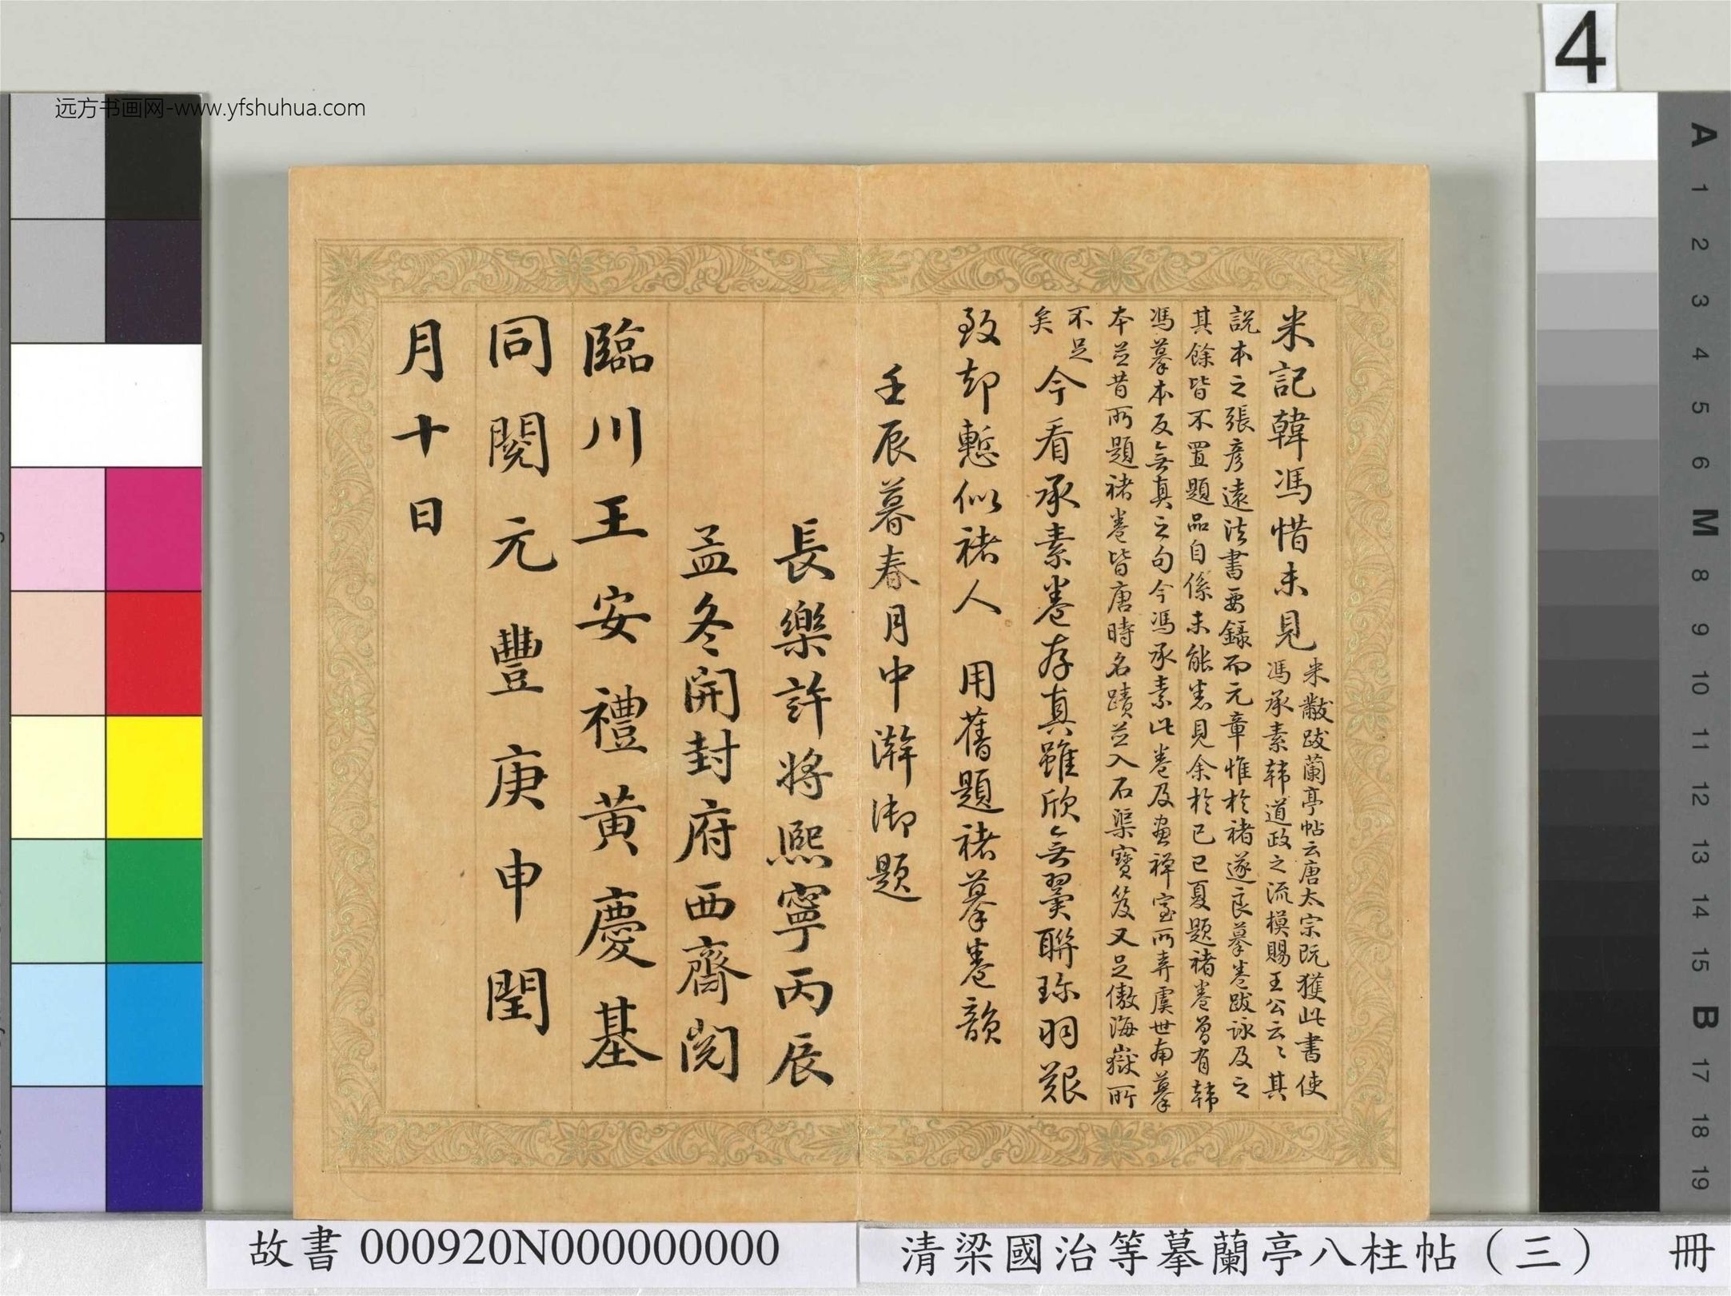 远方书画网-www.yfshuhua.com
4
米記韓馮惜未見
米黻跋蘭亭帖云唐太宗既獲此書使
馮承素韓道政之流模賜王公云〻其
說本之張彥遠法書要錄而元章惟於褚遂良摹卷跋詠及之
其餘皆不置題品自係未能悉見余於己巳夏題褚卷曾有韓
馮摹本反無真之句今馮承素此卷及畫禪室所弆虞世南摹
本並昔所題褚卷皆唐時名蹟並入石渠寶笈又足傲海嶽所
不足
矣
今看承素卷存真雖欣無翼聯珎羽艱
致却慙似褚人 用舊題褚摹卷韻
壬辰暮春月中澣御題
長樂許將熙寧丙辰
孟冬開封府西齋閱
臨川王安禮黃慶基
同閱元豐庚申閏
月十日
A
1
2
3
4
5
6
M
8
9
10
11
12
13
14
15
B
17
18
19
故書 000920N000000000
清梁國治等摹蘭亭八柱帖（三） 冊